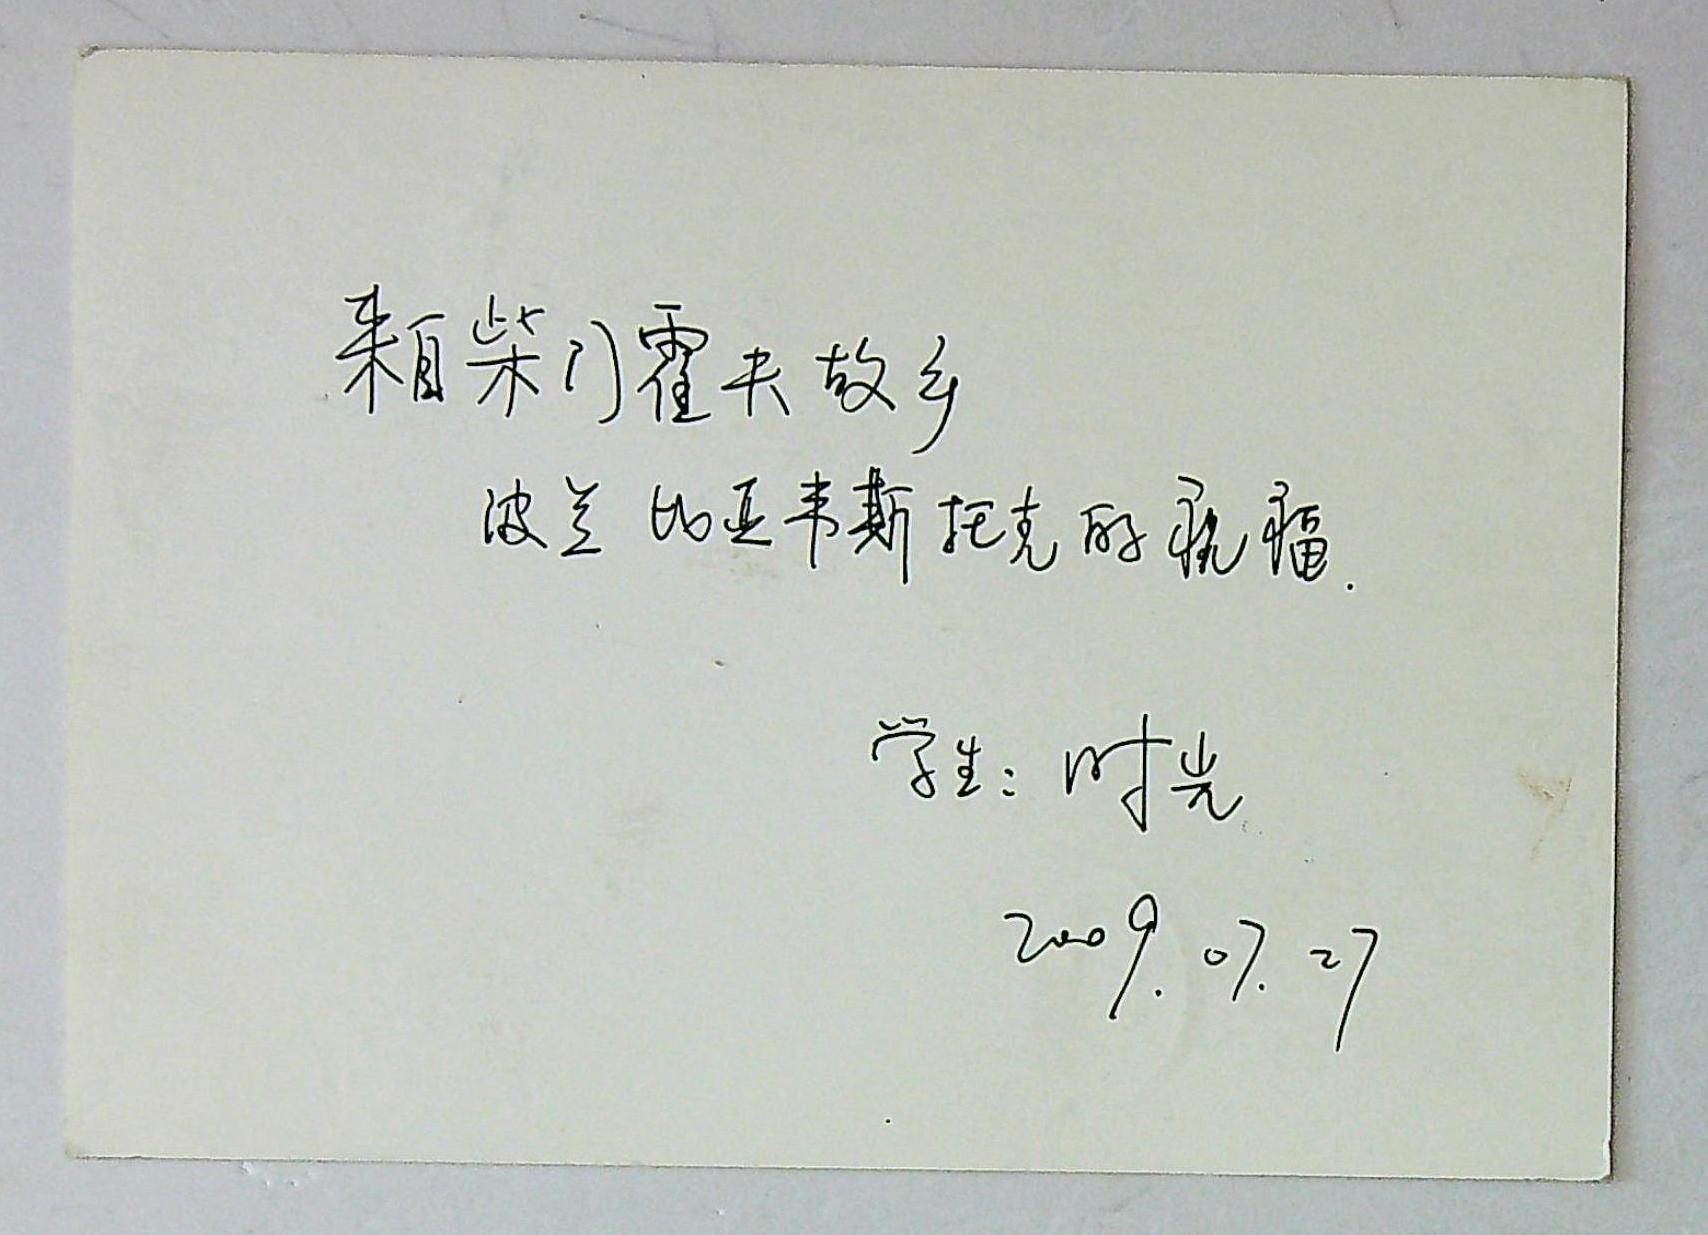 来自柴门霍夫故乡
波兰比亚韦斯托克的祝福.
学生：时光
2009.07.27